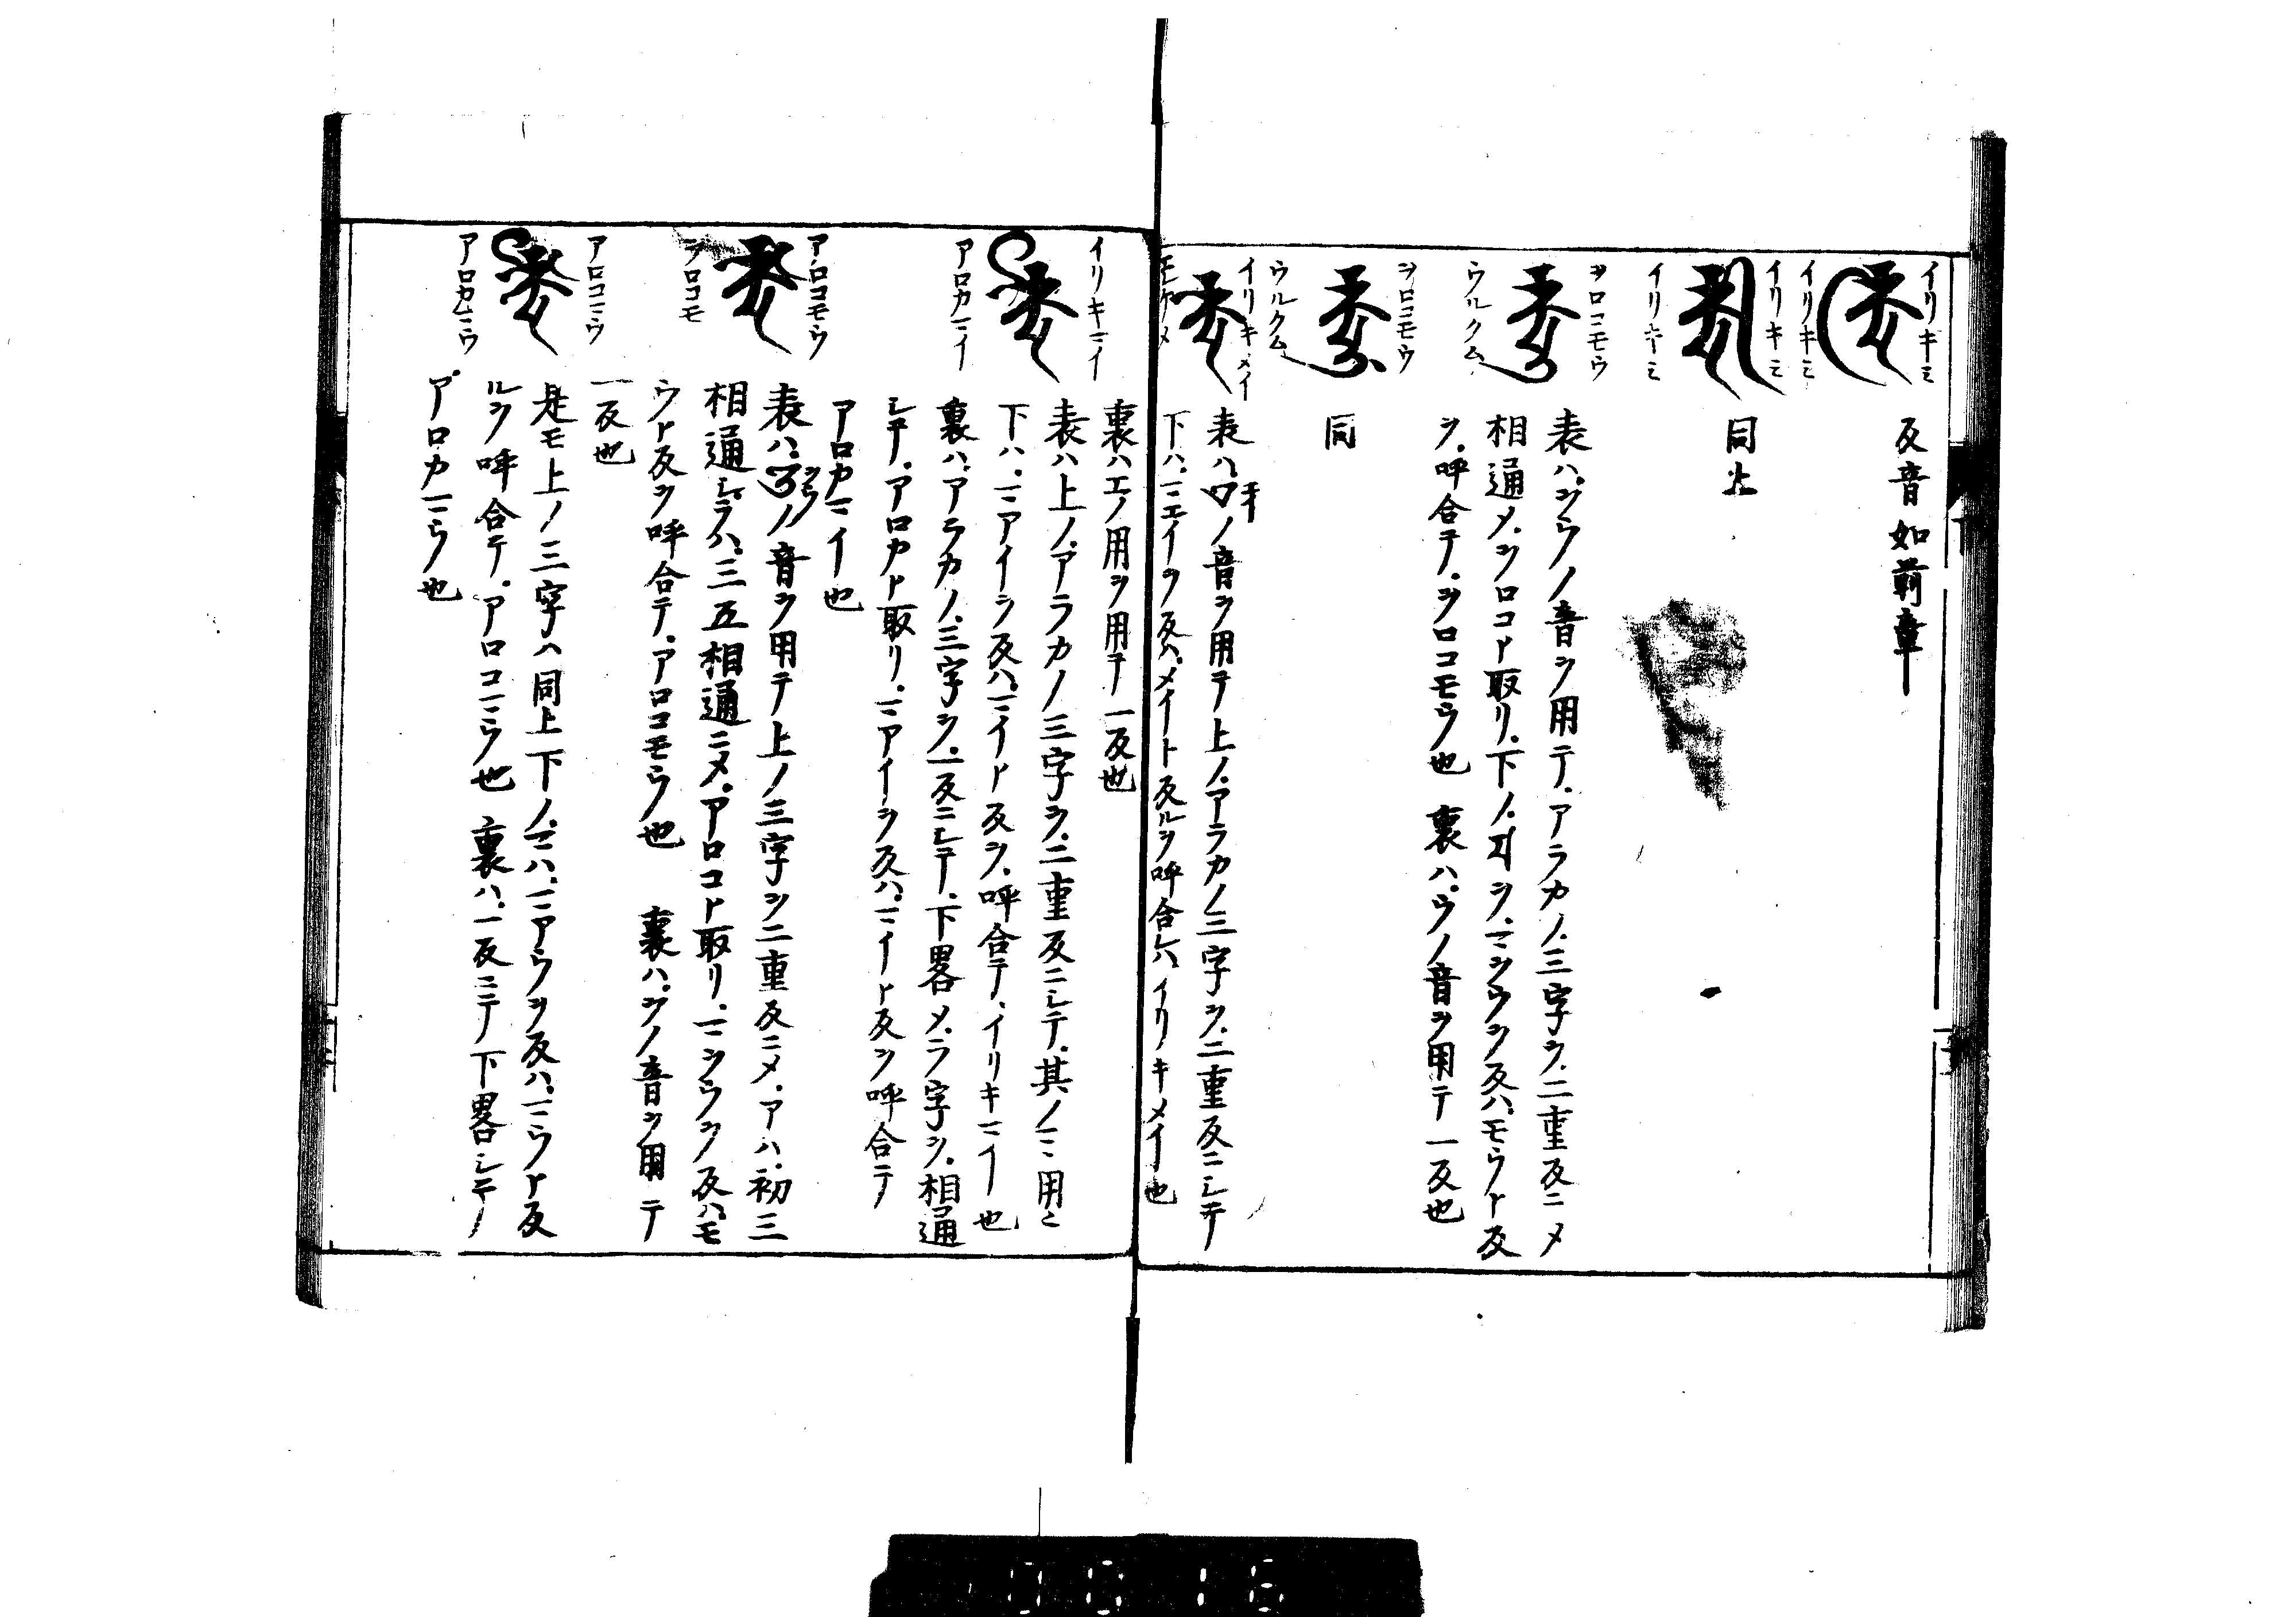 イリキミ
反音如前章
イリキミ
イリキミ
同上
イリキミ
ヲロコモウ
表ハ、ヲウノ音ヲ用テ、アラカノ、三字ヲ、二重反ニメ
相通メ、ヲロコト取リ、下ノ、ヲ、マヲウヲ反ハ、モウト反
ヲ、呼合テ、ヲロコモウ也 裏ハ、ウノ音ヲ用テ一反也
ウルクム
ヲロコモウ
同
ウルクム
イリキメイ
表ハ、ノ音ヲ用テ上ノ、アラカノ三字ヲ、二重反ニシテ
下ハ、マエイヲ反ハ、メイト反ルヲ呼合レハ、イリキメイ也
裏ハエノ用ヲ用テ一反也
イリキマイ
表ハ上ノ、アラカノ三字ヲ、二重反ニシテ、其ノマヽ用ヒ
下ハ、マアイヲ反ハ、マイト反ヲ、呼合テ、イリキマイ也
裏ハ、アラカノ、三字ヲ、一反ニシテ、下畧メ、ラ字ヲ、相通
シテ、アロカト取リ、マアイヲ反ハ、マイト反ヲ呼合テ
アロカマイ也
アロカマイ
アロコモウ
表ハ、ヲウノ音ヲ用テ上ノ三字ヲ二重反ニメ、アハ、初三
相通シ、ラハ、三五相通ニメ、アロコト取リ、マヲウヲ反ハ、モ
ウト反ヲ呼合テ、アロコモウ也 裏ハ、ヲノ音ヲ用テ
一反也
ヲロコモ
アロコマウ
是モ上ノ三字ハ同上下ノ、マハ、マアウヲ反ハ、マウト反
ルヲ呼合テ、アロコマウ也 裏ハ、一反ニテ下畧シテ
アロカマウ也
アロカマウ